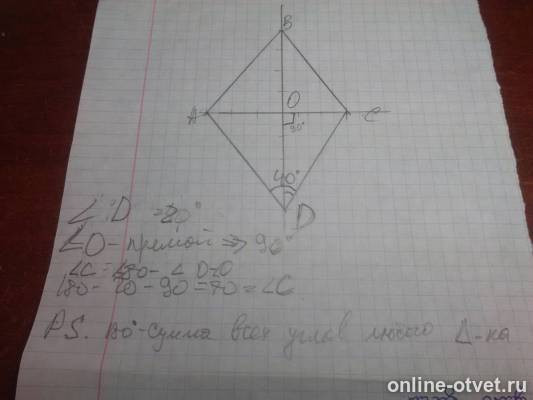 B
A
O
C
90°
40°
D
∠ D = 20°
∠O - прямой => 90°
∠C = 180 - ∠ D+O
180 - 20 - 90 = 70 = ∠C
P.S. 180° - сумма всех углов любого Δ-ка
online-otvet.ru